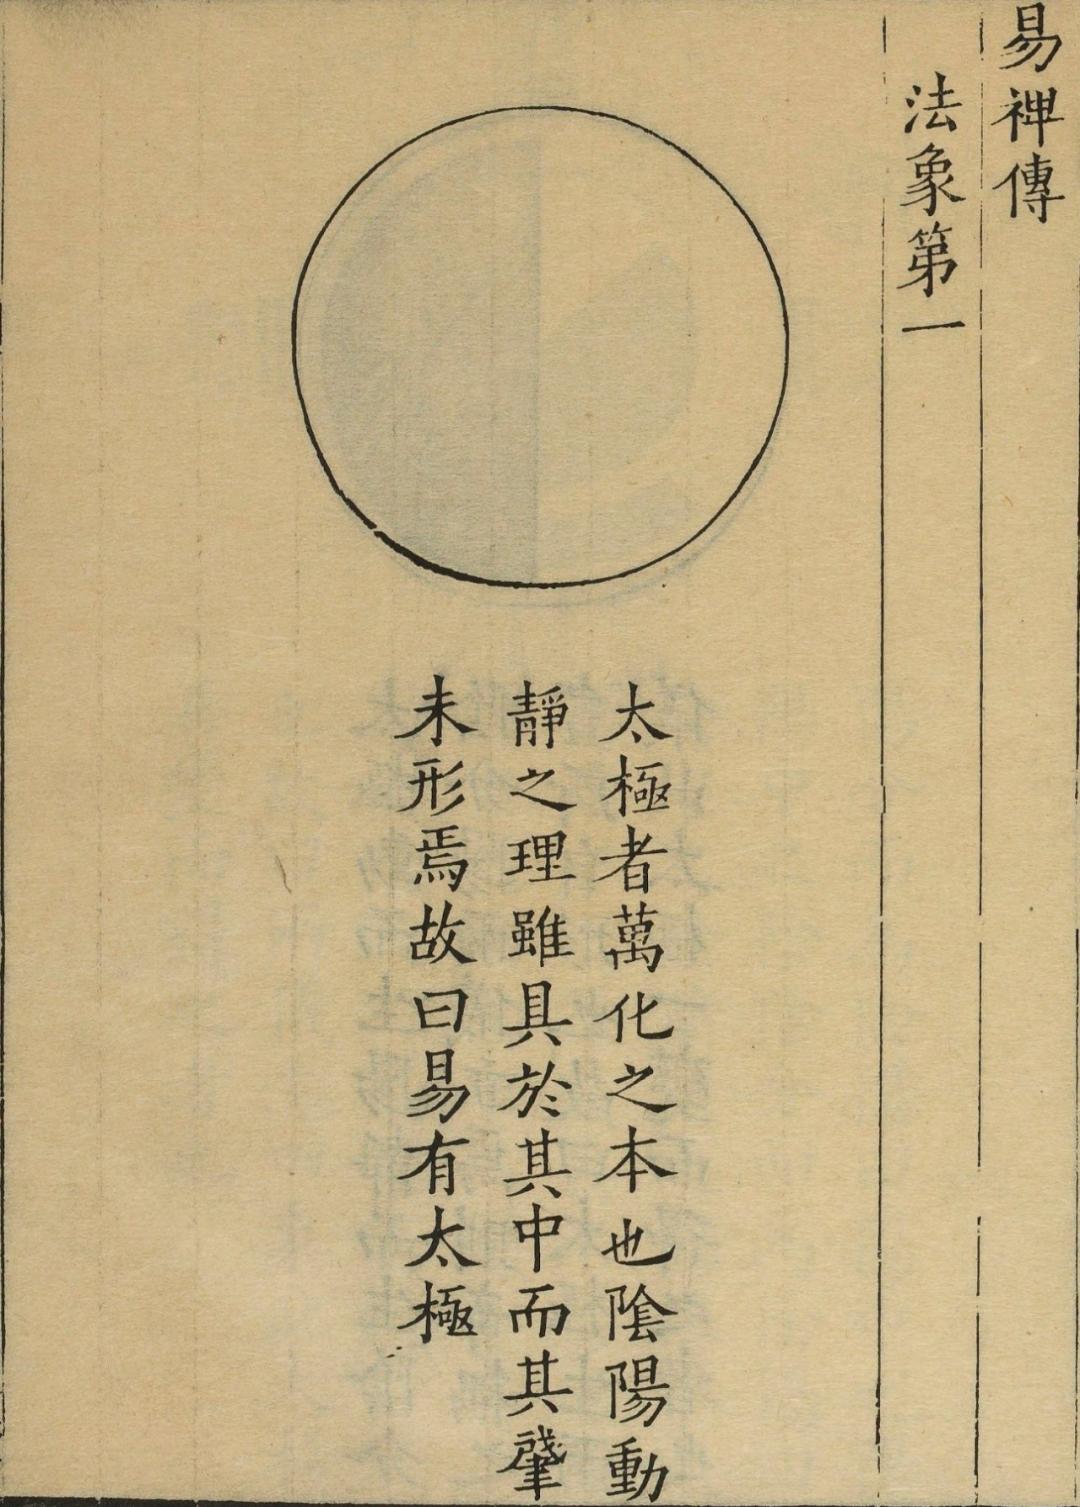 易禆傳
法象第一
太極者萬化之本也隂陽動
靜之理雖具於其中而其肈
未形焉故曰易有太極